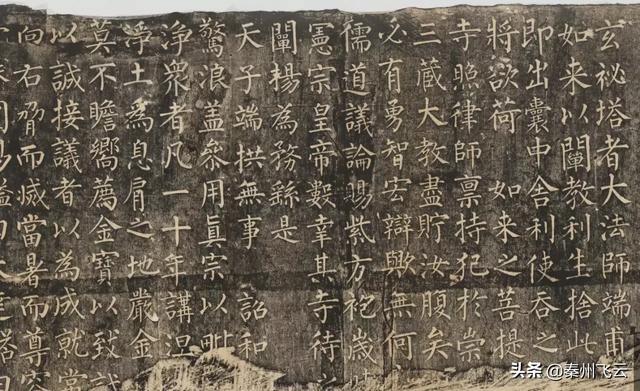 玄秘塔者大法師端甫
如来以闡教利生捨此
即出囊中舍利使吞之
將欲荷 如来之菩提
寺照律師禀持犯於崇
三藏大教盡貯汝腹矣
必有勇智宏辯歟無何
儒道議論賜紫方袍歲
憲宗皇帝數幸其寺待
闡揚為務繇是
天子端拱無事 詔和
驚浪蓋參用真宗以毗
淨衆者凡一十年講涅
淨土為息肩之地嚴金
莫不瞻嚮薦金寶以致
以誠接議者以為成就常
向右脅而滅當暑而尊容
头条 @秦州飞云